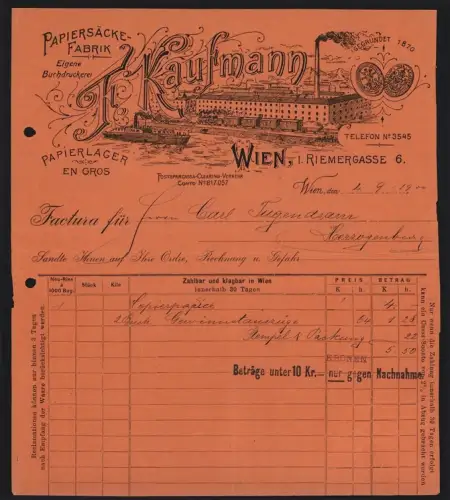 PAPIERSÄCKE-
FABRIK
Eigene
Buchdruckerei
Kaufmann
GEGRÜNDET 1870
TELEFON Nº 3545
PAPIERLAGER
EN GROS
WIEN, I. RIEMERGASSE 6.
POSTSPARCASSA-CLEARING-VERKEHR
CONTO Nº 817.057
Wien, am 2. 9. 1900
Factura für Herrn Carl
Herzogenburg
Sandte Ihnen auf Ihre Ordre, Rechnung u. Gefahr
Neu-Ries
à
1000 Bog.
Stück
Kilo
Zahlbar und klagbar in Wien
innerhalb 30 Tagen
PREIS
K h.
BETRAG
K h.
1 4
2 64 1 28
Stempel & Packung 22
5 50
Beträge unter 10 Kr.— nur gegen Nachnahme
Reclamationen können nur binnen 3 Tagen
nach Empfang der Waare berücksichtigt werden.
Nur wenn die Zahlung innerhalb 30 Tagen erfolgt